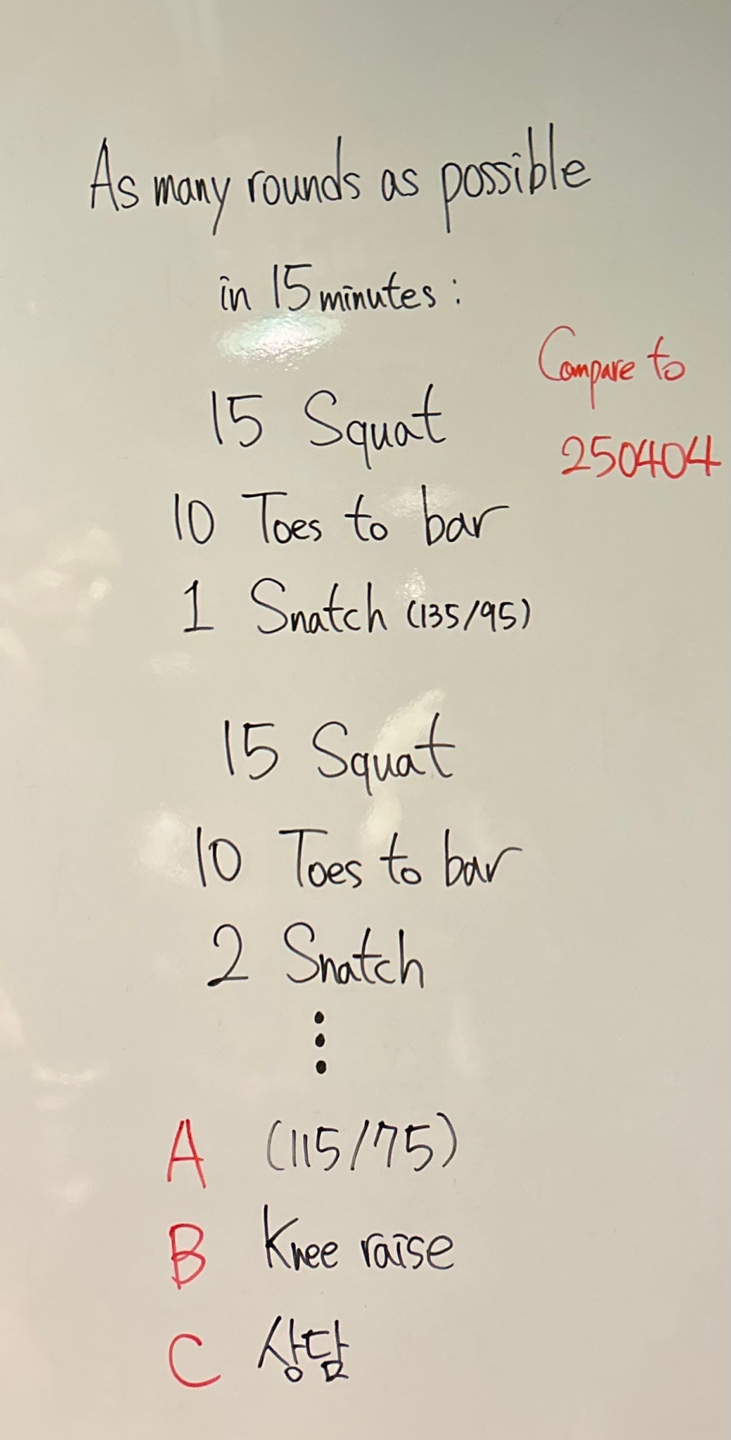 As many rounds as possible
in 15 minutes :
Compare to
250404
15 Squat
10 Toes to bar
1 Snatch (135/95)
15 Squat
10 Toes to bar
2 Snatch
⋮
A (115/75)
B Knee raise
C 상담